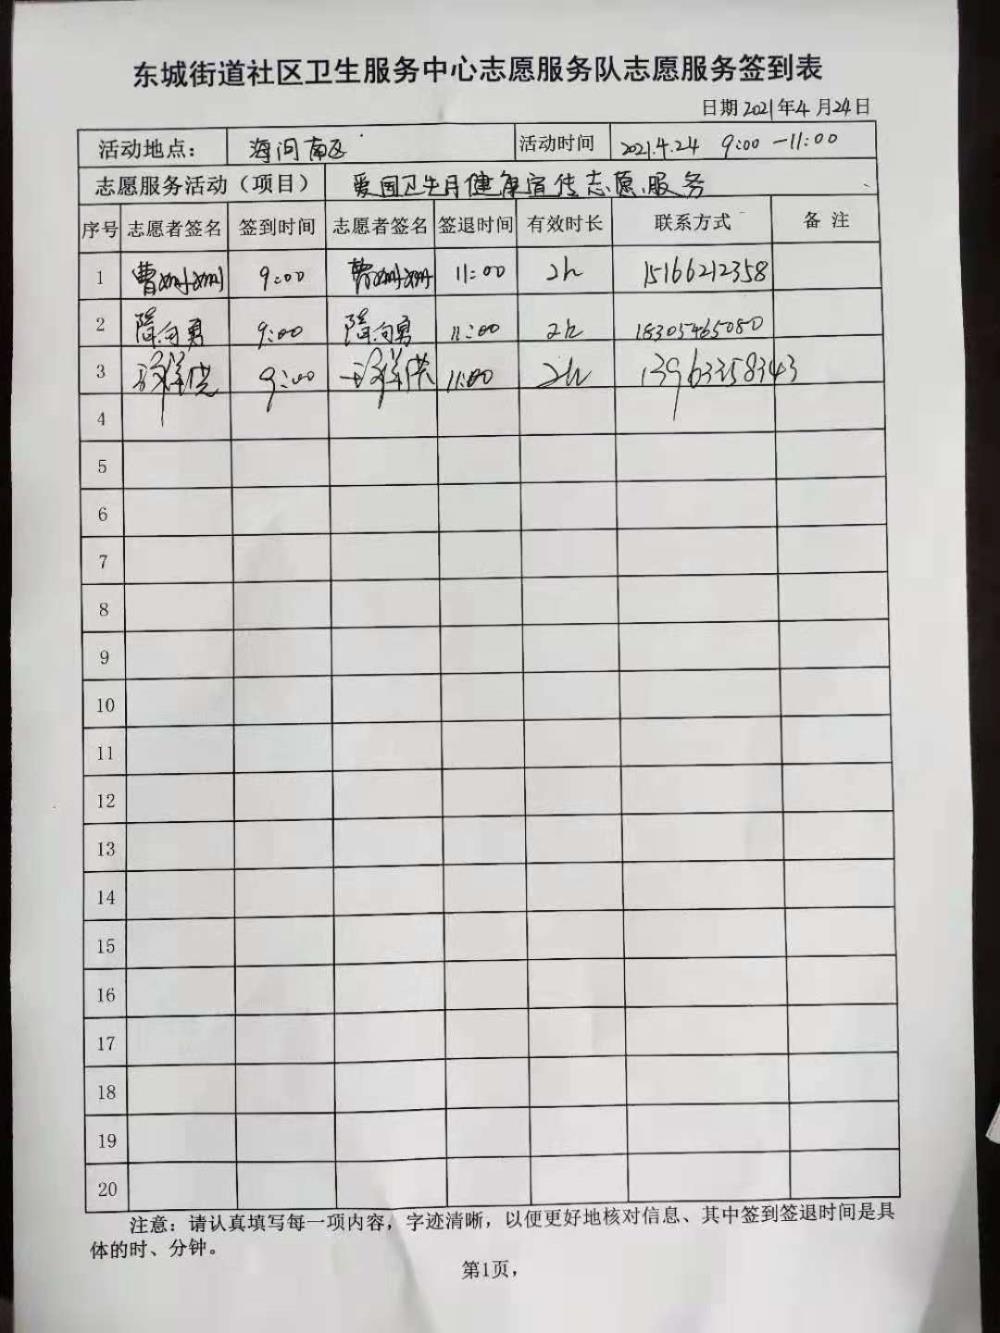 东城街道社区卫生服务中心志愿服务队志愿服务签到表
日期2021年4月24日
活动地点： 海河南区 活动时间 2021.4.24 9:00-11:00
志愿服务活动（项目） 爱国卫生月健康宣传志愿服务
序号 志愿者签名 签到时间 志愿者签名 签退时间 有效时长 联系方式 备注
1 曹姗姗 9:00 曹姗姗 11:00 2h 15166212358
2 隋向勇 9:00 隋向勇 11:00 2h 18305465080
3 9:00 11:00 2h 13963358343
4
5
6
7
8
9
10
11
12
13
14
15
16
17
18
19
20
注意：请认真填写每一项内容，字迹清晰，以便更好地核对信息、其中签到签退时间是具
体的时、分钟。
第1页，